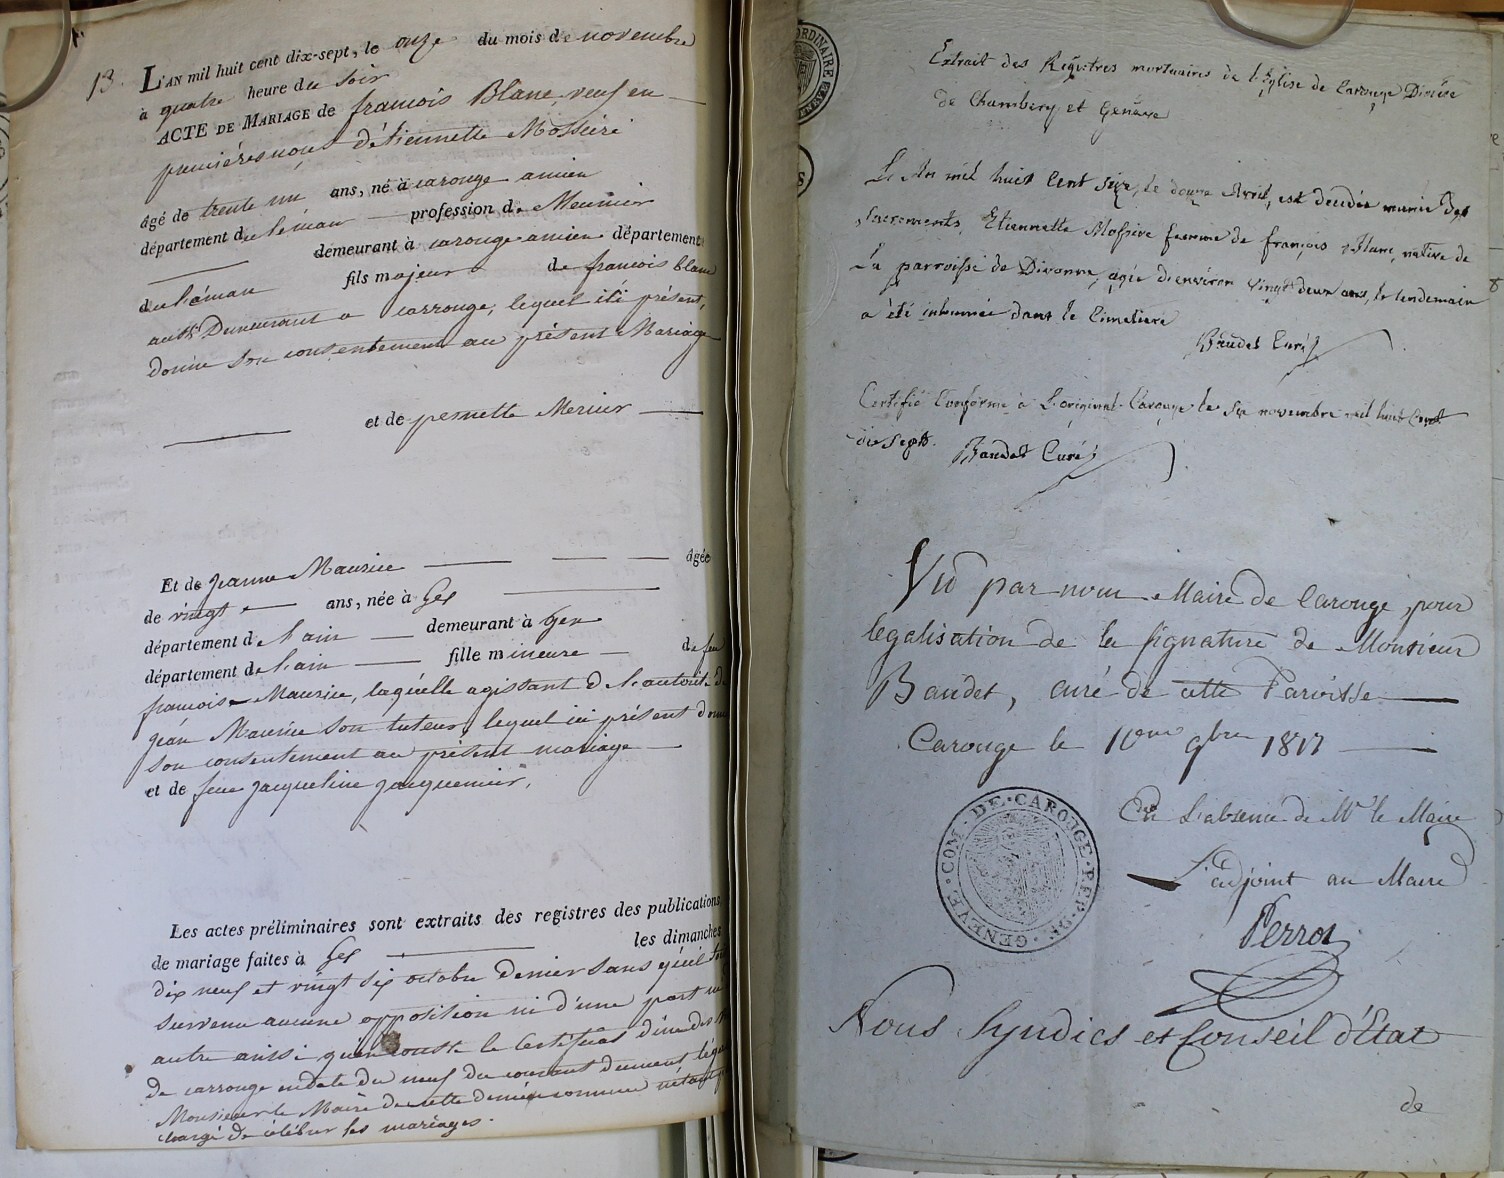 13.
L'AN mil huit cent dix-sept, le onze du mois de novembre
à quatre heure du soir
ACTE DE MARIAGE de francois Blanc, veuf en
premières noces d'étiennette Mossière
âgé de trente un ans, né à carouge ancien
département du léman profession de Meunier
demeurant à carouge ancien département
du Léman fils majeur de francois blanc
Demeurant a Carrouge, lequel ici présent,
donne son consentement au présent Mariage
et de pernette Mercier
Et de Jeanne Maurice âgée
de vingt ans, née à Gex
département de l'ain demeurant à Gex
département de l'ain fille mineure de feu
francois Maurice, laquelle agissant de l'autorité de
jean Maurice son tuteur, lequel ici présent donne
son consentement au présent mariage
et de feue jacqueline jacquemier.
Les actes préliminaires sont extraits des registres des publications
de mariage faites à Gex les dimanches
dix neuf et vingt six octobre dernier sans qu'il
survenu aucune opposition ni d'une part ni
autre ainsi qu'en conste le Certificat
de carrouge en date du neuf du courant dument
Monsieur le Maire de cette dernière commune n'étant
chargé de célébrer les mariages.
ORDINAIRE
Extrait des Registres mortuaires de l'Eglise de Carouge Diocèse
de Chambery et Genève
L'An mil huit Cent seize, le douze Avril, est decedée munie des
Sacrements, Etiennette Mossire femme de françois Blanc, native de
La parroisse de Divonne, agée d'environ vingt deux ans, le lendemain
a été inhumée dans le Cimetiere
Baudet Curé
Certifié Conforme à L'original. Carouge le six novembre mil huit Cent
dix Sept. Baudet Curé
Vu par nous Maire de Carouge, pour
legalisation de la signature de Monsieur
Baudet, curé de cette Paroisse
Carouge le 10me 9bre 1817
En L'absence de Mr le Maire
L'adjoint au Maire
COM. DE CAROUGE. REP. DE GENEVE
Perrot
Nous Syndics et Conseil d'Etat
de